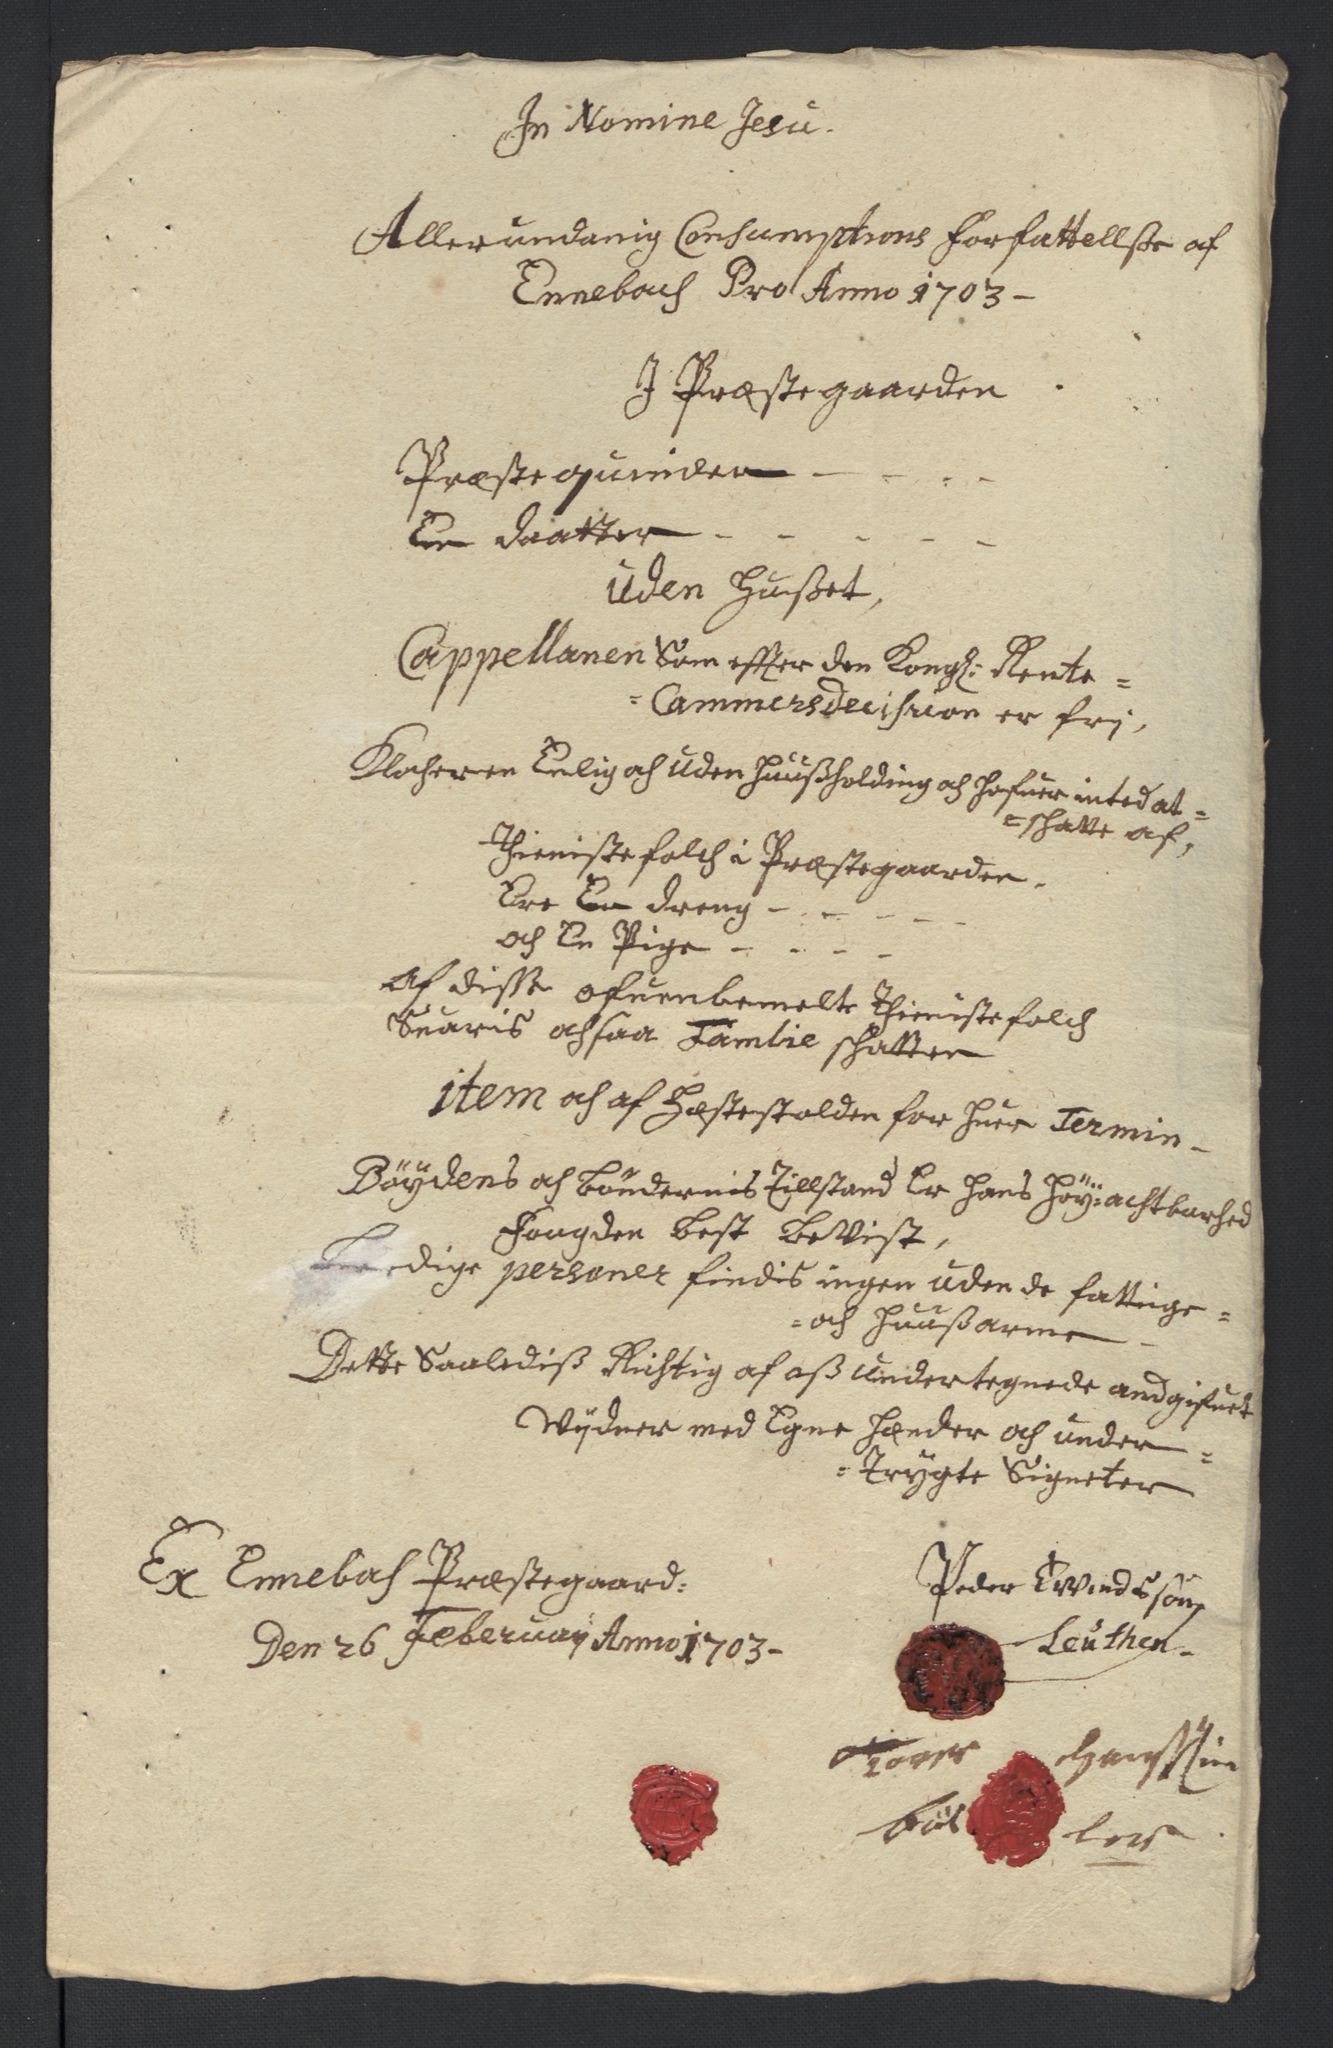 In Nomine Jesu.
Allerundanig Consumptions Forfattellsse af
Ennebach Pro Anno 1703 -
I Præstegaarden
Præstequinden - - - -
En daatter - - - - -
uden Husset,
Cappellanen Som effter den Kongl: Rente =
= Cammersdecission er frj,
Klocheren Enlig och uden Huussholding och hafuer inted at =
= schatte af,
Thienistefolch i Præstegaarden.
Ere En dreng - - - - -
och En Pige - - - -
af disse ofuenbemelte Thienistefolch
Suaris ochsaa Familie schatten
item och af Hæstestalden for huer Termin -
Böÿdens och Böndernis Tillstand Er Hans Höÿ:achtbarhed
Fougden best beVist,
Lædige personer findis ingen uden de fattige =
= och Huussarme -
Dette Saalediss Richtig af oss undertegnede andgifuet
Vÿdner med Egne Hænder och under =
= Trÿgte Signeter
Ex Ennebach Præstegaard:
Den 26 Feberuarj Anno 1703 -
Peder Evindssön
Leuthen -